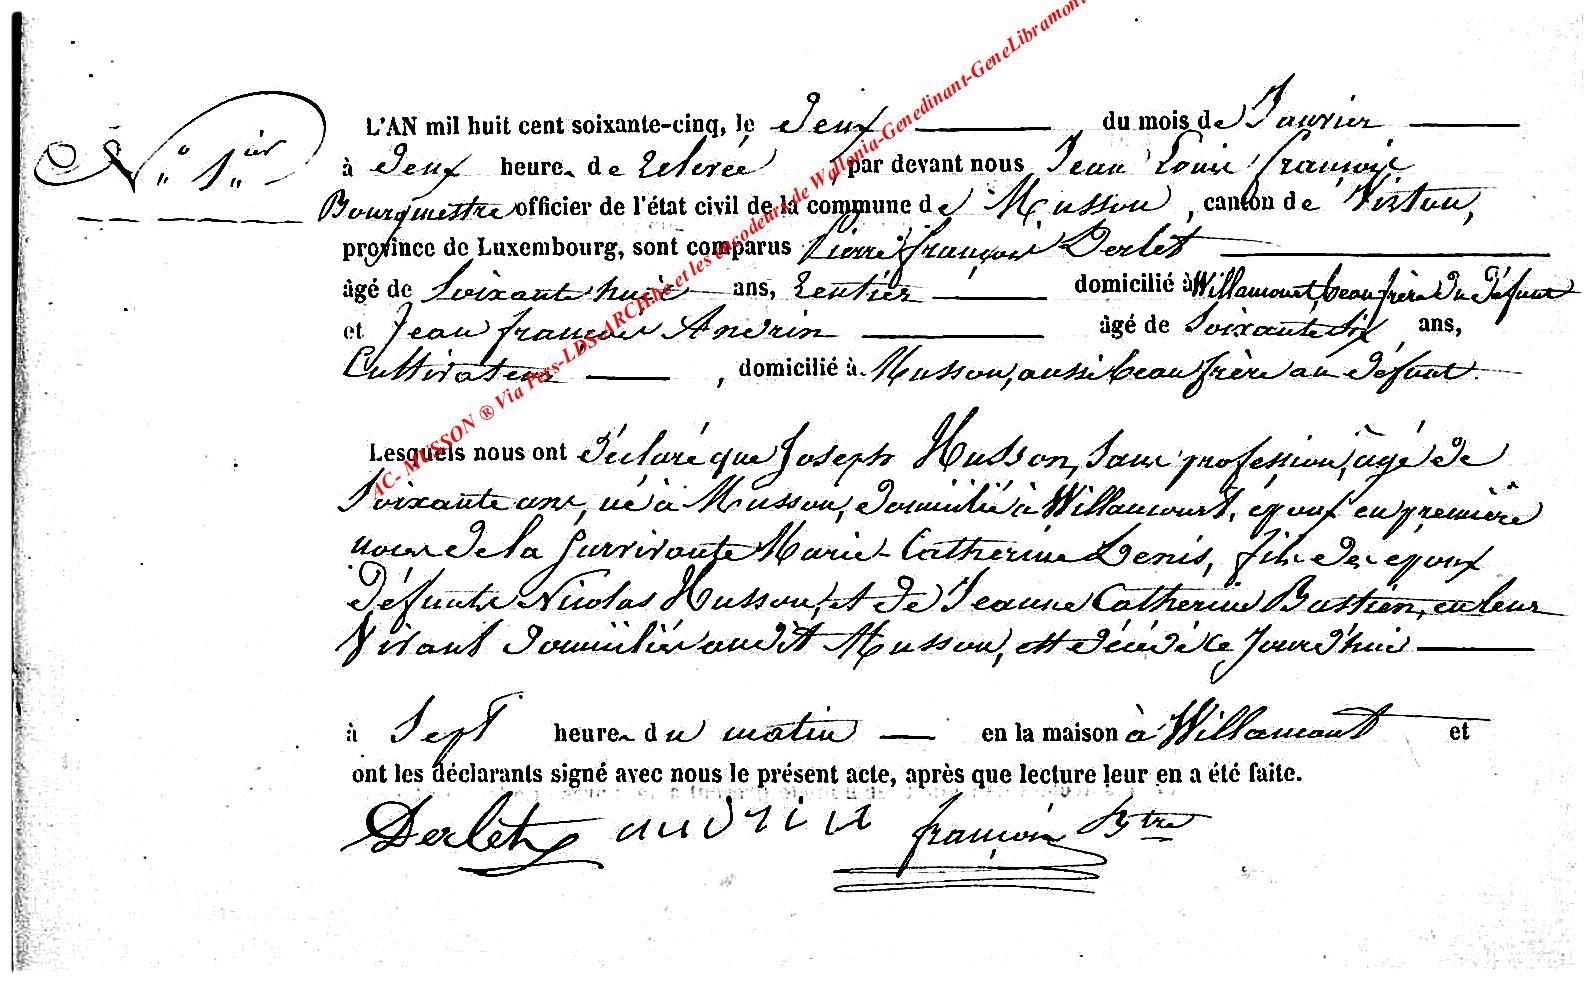 AC- MUSSON ® Via Pers-LDS-ARCH.be et les encodeurs de Wallonia-Genedinant-GeneLibramont
N° 1ier
L'AN mil huit cent soixante-cinq, le deux du mois de Janvier
à deux heures de relevée, par devant nous Jean Louis françois
Bourgmestre officier de l'état civil de la commune de Musson, canton de Virton,
province de Luxembourg, sont comparus Pierre françois Derlet
âgé de Soixante huit ans, rentier domicilié à Willancourt, beau frère du défunt
et Jean françois Andrin âgé de Soixante Six ans,
Cultivateur, domicilié à Musson, aussi beau frère au défunt.
Lesquels nous ont déclaré que Joseph Husson, Sans profession, âgé de
Soixante ans, né à Musson, domicilié à Willancourt, époux en première
noces de la Survivante Marie-Catherine Denis, fils des époux
défunts Nicolas Husson, et de Jeanne Catherine Bastien, en leur
Vivant domiciliés audit Musson, est décédé ce Jourd'hui
à Sept heures du matin en la maison à Willancourt et
ont les déclarants signé avec nous le présent acte, après que lecture leur en a été faite.
Derlet andrin françois Bgtre